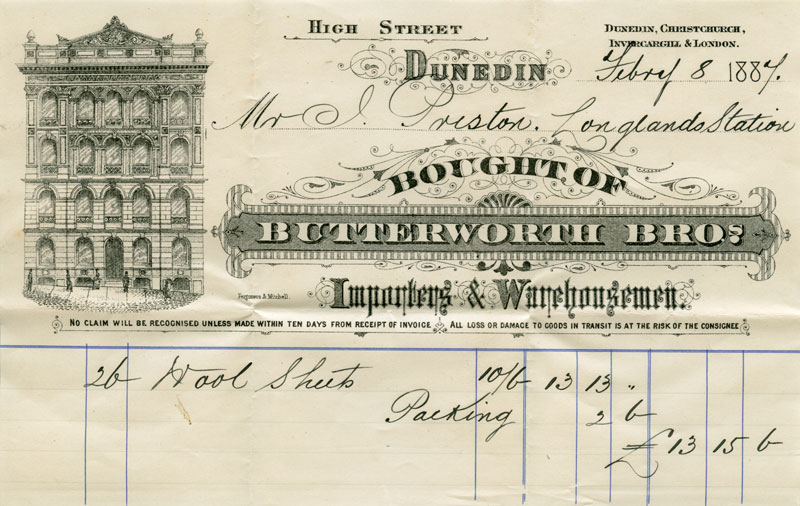 High Street
Dunedin, Christchurch,
Invercargill & London.
Dunedin Febry 8 1887.
Mr J. Preston. Longlands Station
Bought of
Butterworth Bros
Importers & Warehousemen.
Fergusson & Mitchell.
No claim will be recognised unless made within ten days from receipt of invoice. All loss or damage to goods in transit is at the risk of the consignee
26 Wool Sheets 10/6 13 13 "
Packing 2 6
£13 15 6